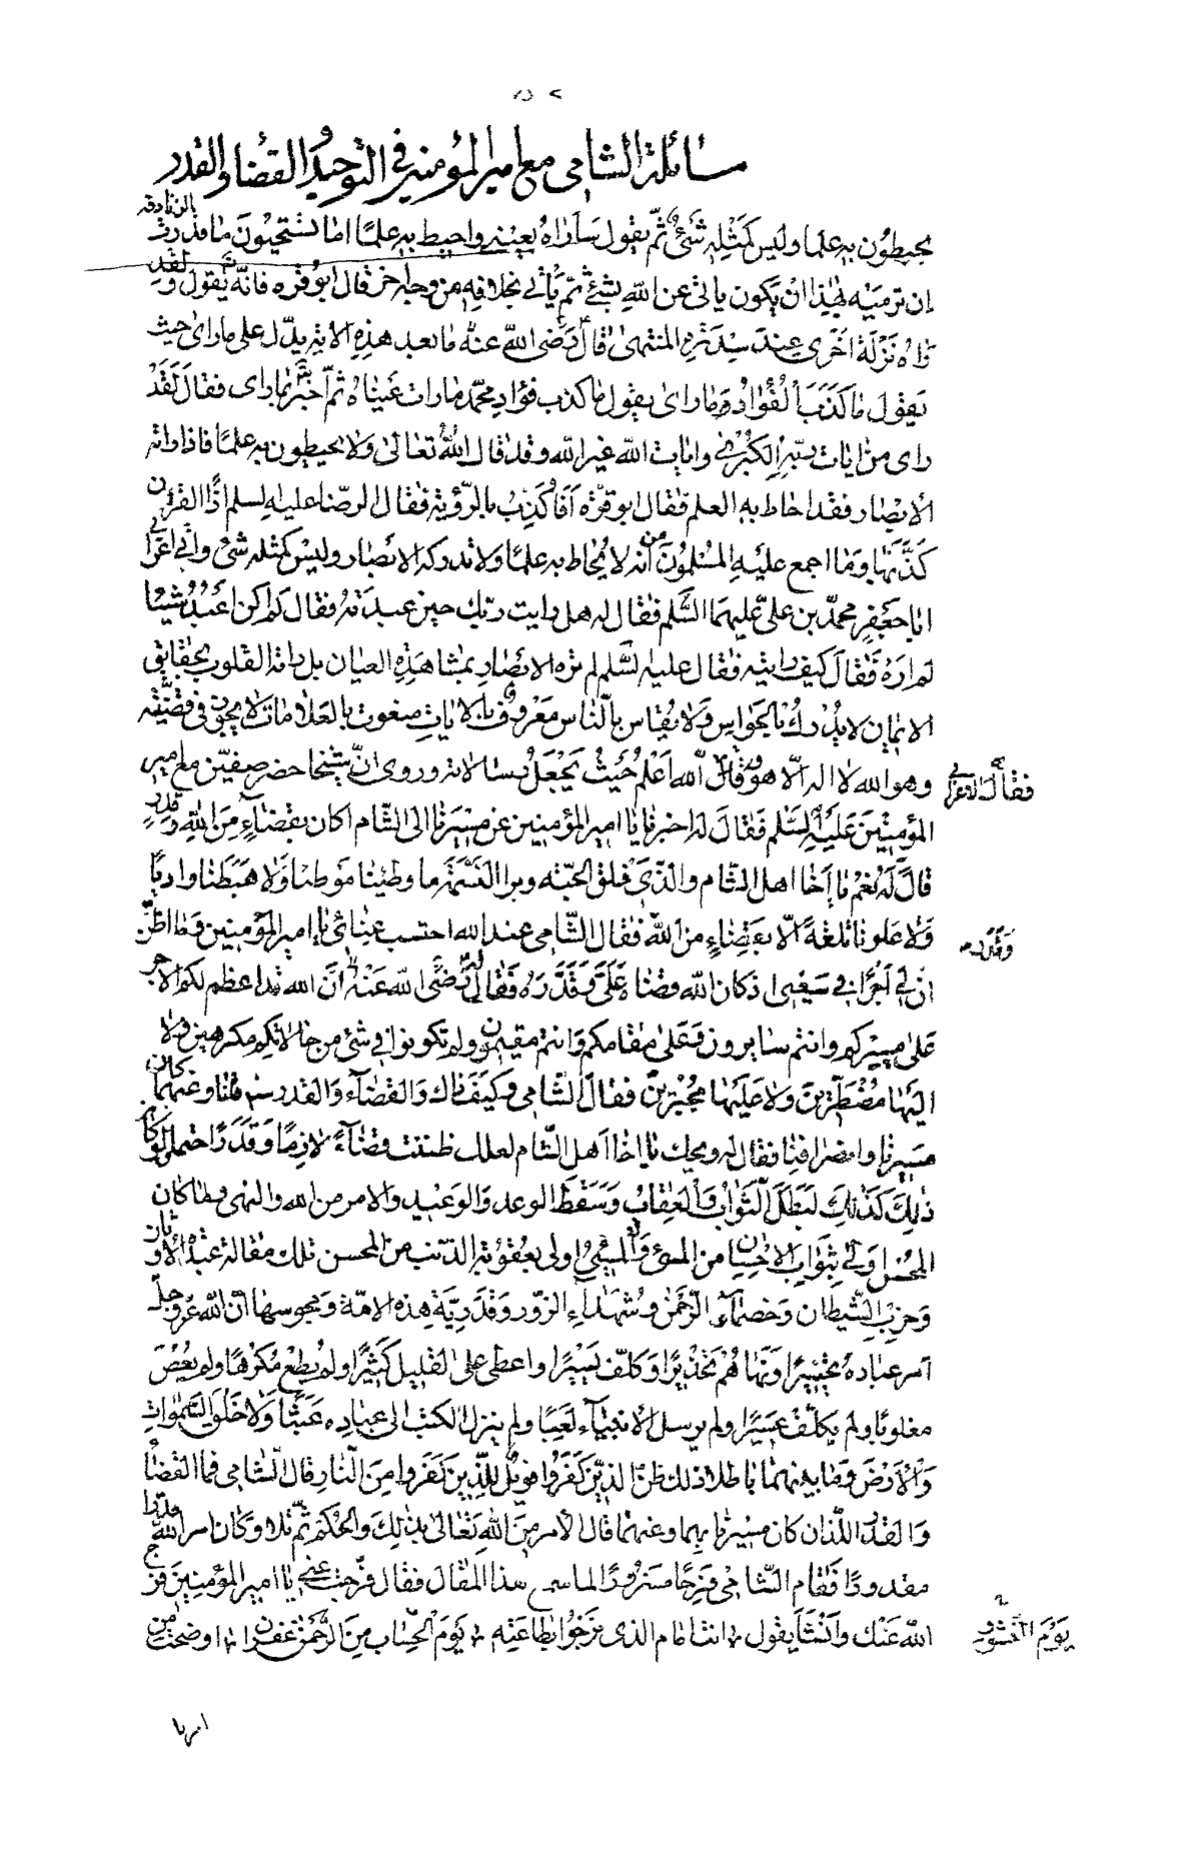 مسائلة الشامى مع امير المؤمنين فى التوحيد والقضا والقدر
يحيطون به علما وليس كمثله شئ ثم يقول سأراه بعينى واحيط به علمًا اما تستحيون ما قدرت الزنادقة
ان ترميه بهذا ان يكون ياتى عن الله بشئ ثم يأتى بخلافه من وجه اخر قال ابو قره فانّه يقول ولقد
راٰه نزلة اخرى عند سدرة المنتهى قال رضى الله عنه ما بعد هذه الاية يدّل على ما راى حيث
يقول ما كذب الفؤاد وما راى يقول ما كذب فؤاد محمّد ما رات عيناه ثم اخبر بما راى فقال لقد
راى من ايات ربه الكبرى وايات الله غير الله وقد قال الله تعالى ولا يحيطون به علمًا فاذا راته
الابصار فقد احاط به العلم فقال ابو قرّة افاكذب بالرّؤية فقال الرضا عليه لسلم اذا القرٰن
كذّبها وما اجمع عليه المسلمون من انه لا يحاط به علمًا ولا تدركه الابصار وليس كمثله شئ واتى اعرابى
ابا جعفر محمّد بن على عليهما السّلم فقال له هل رايت ربّك حين عبدته فقال لم اكن اعبد شيئا
لم اره فقال كيف رايته فقال عليه لسّلم لم تره الابصار بمشاهدة العيان بل راته القلوب بحقايق
الايمان لا يدرك بالحواس ولا يقاس بالناس معروف بالايات منعوت بالعلامات لا يجور فى قضيّته
وهو الله لا اله الّا هو فقال الله اعلم حيث يجعل رسالاته وروى انّ شيخا حضر صفين مع امير
فقال الاعرابى
المؤمنين عليه السلم فقال له اخبرنا يا امير المؤمنين عن مسيرنا الى الشام اكان بقضاء من الله وقدر
قال له نعم يا اخا اهل الشام والذى فلق الحبّه وبرا النسمة ما وطئنا موطئا ولا هبطنا واديًا
ولا علونا تلعة الّا بقضاء من الله فقال الشّامى عند الله احتسب عنائى يا امير المؤمنين وما اظنّ
وقدر
ان لى اجرًا فى سعيى اذ كان الله قضاه علىّ وقدّره فقال له رضى الله عنه انّ الله قد اعظم لكم الاجر
على مسيركم وانتم سايرون وعلى مقامكم وانتم مقيمون ولم تكونوا فى شئ من حالاتكم مكرهين ولا
اليها مضطرّين ولا عليها مجبرين فقال الشامى وكيف ذاك والقضآء والقدر ساقانا وعنهما كان
مسيرنا وانصرافنا فقال له ويحك يا اخا اهل الشام لعلك ظننت قضآءً لازمًا وقدرًا حتما لو كان
ذلك كذلك لبطل الثواب والعقاب وسقط الوعد والوعيد والامر من الله والنهى وما كان
المحسن اولى بثواب الاحسان من المسئ والمسئ اولى بعقوبة الذّنب من المحسن تلك مقالة عبدة الاوثان
وحزب الشّيطان وخصمآء الرّحمٰن وشهدآء الزّور وقدريّة هذه الامّة ومجوسها انّ الله عزّ وجلّ
امر عباده تخييرًا ونهاهم تحذيرًا وكلّف يسيرًا واعطى على القليل كثيرًا ولم يطع مكرهًا ولم يعص
مغلوبًا ولم يكلّف عسيرًا ولم يرسل الانبيآء لعبًا ولم ينزل الكتب الى عباده عبثًا ولا خلق السّمٰوات
والارض وما بينهما باطلا ذلك ظنّ الذين كفروا فويل للذين كفروا من النار قال الشامى فما القضا
والقدر اللّذان كان مسيرنا بهما وعنهما قال الامر من الله تعالى بذلك والحكم ثمّ تلا وكان امر الله قدرًا
مقدورًا فقام الشامى فرحًا مسرورًا لما سمع هذا المقال فقال فرّجت عنّى يا امير المؤمنين فرّج
الله عنك وانشأ يقول انت الامام الذى نرجوا بطاعته يوم الحساب من الرّحمٰن غفرانا اوضحت من
يوم النشور
امرنا